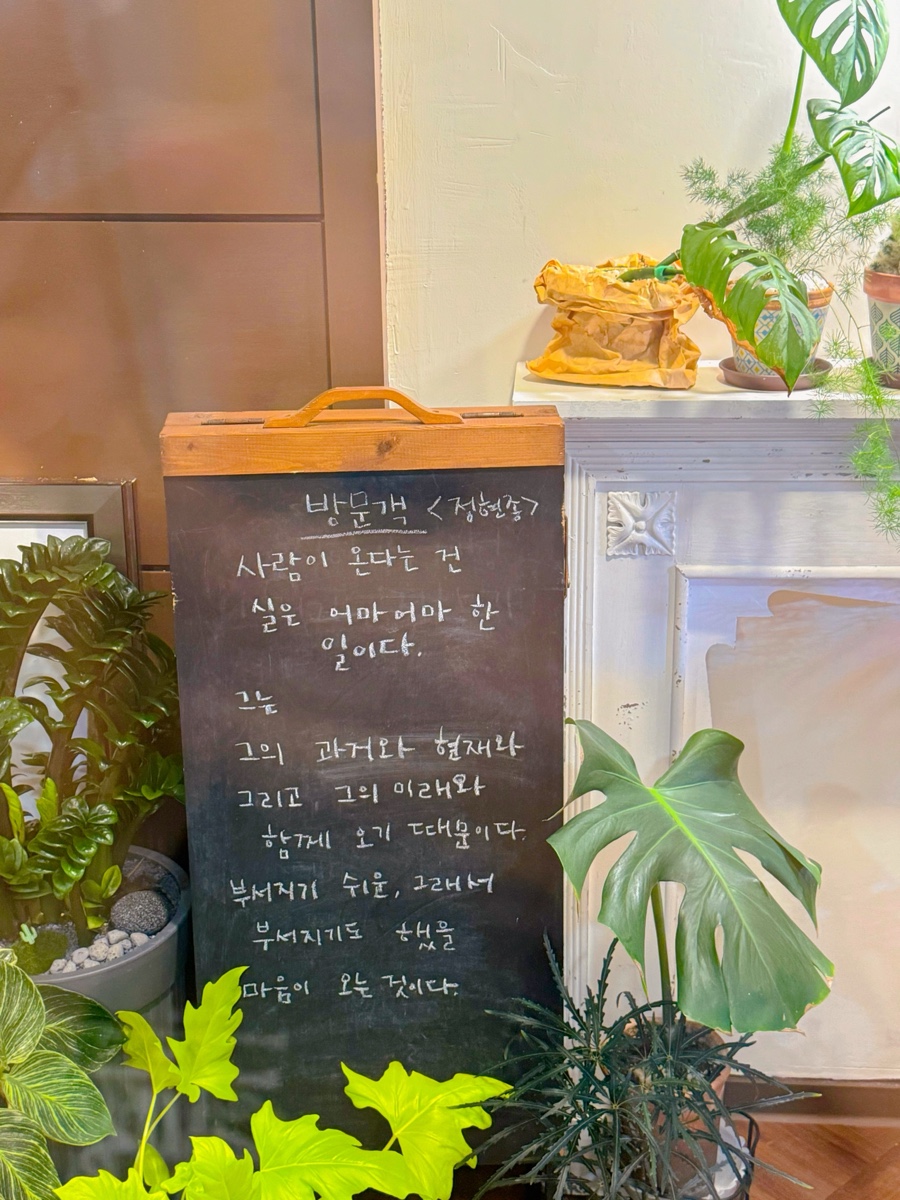 방문객 <정현종>
사람이 온다는 건
실은 어마어마 한
일이다.
그는
그의 과거와 현재와
그리고 그의 미래와
함께 오기 때문이다.
부서지기 쉬운, 그래서
부서지기도 했을
마음이 오는 것이다.